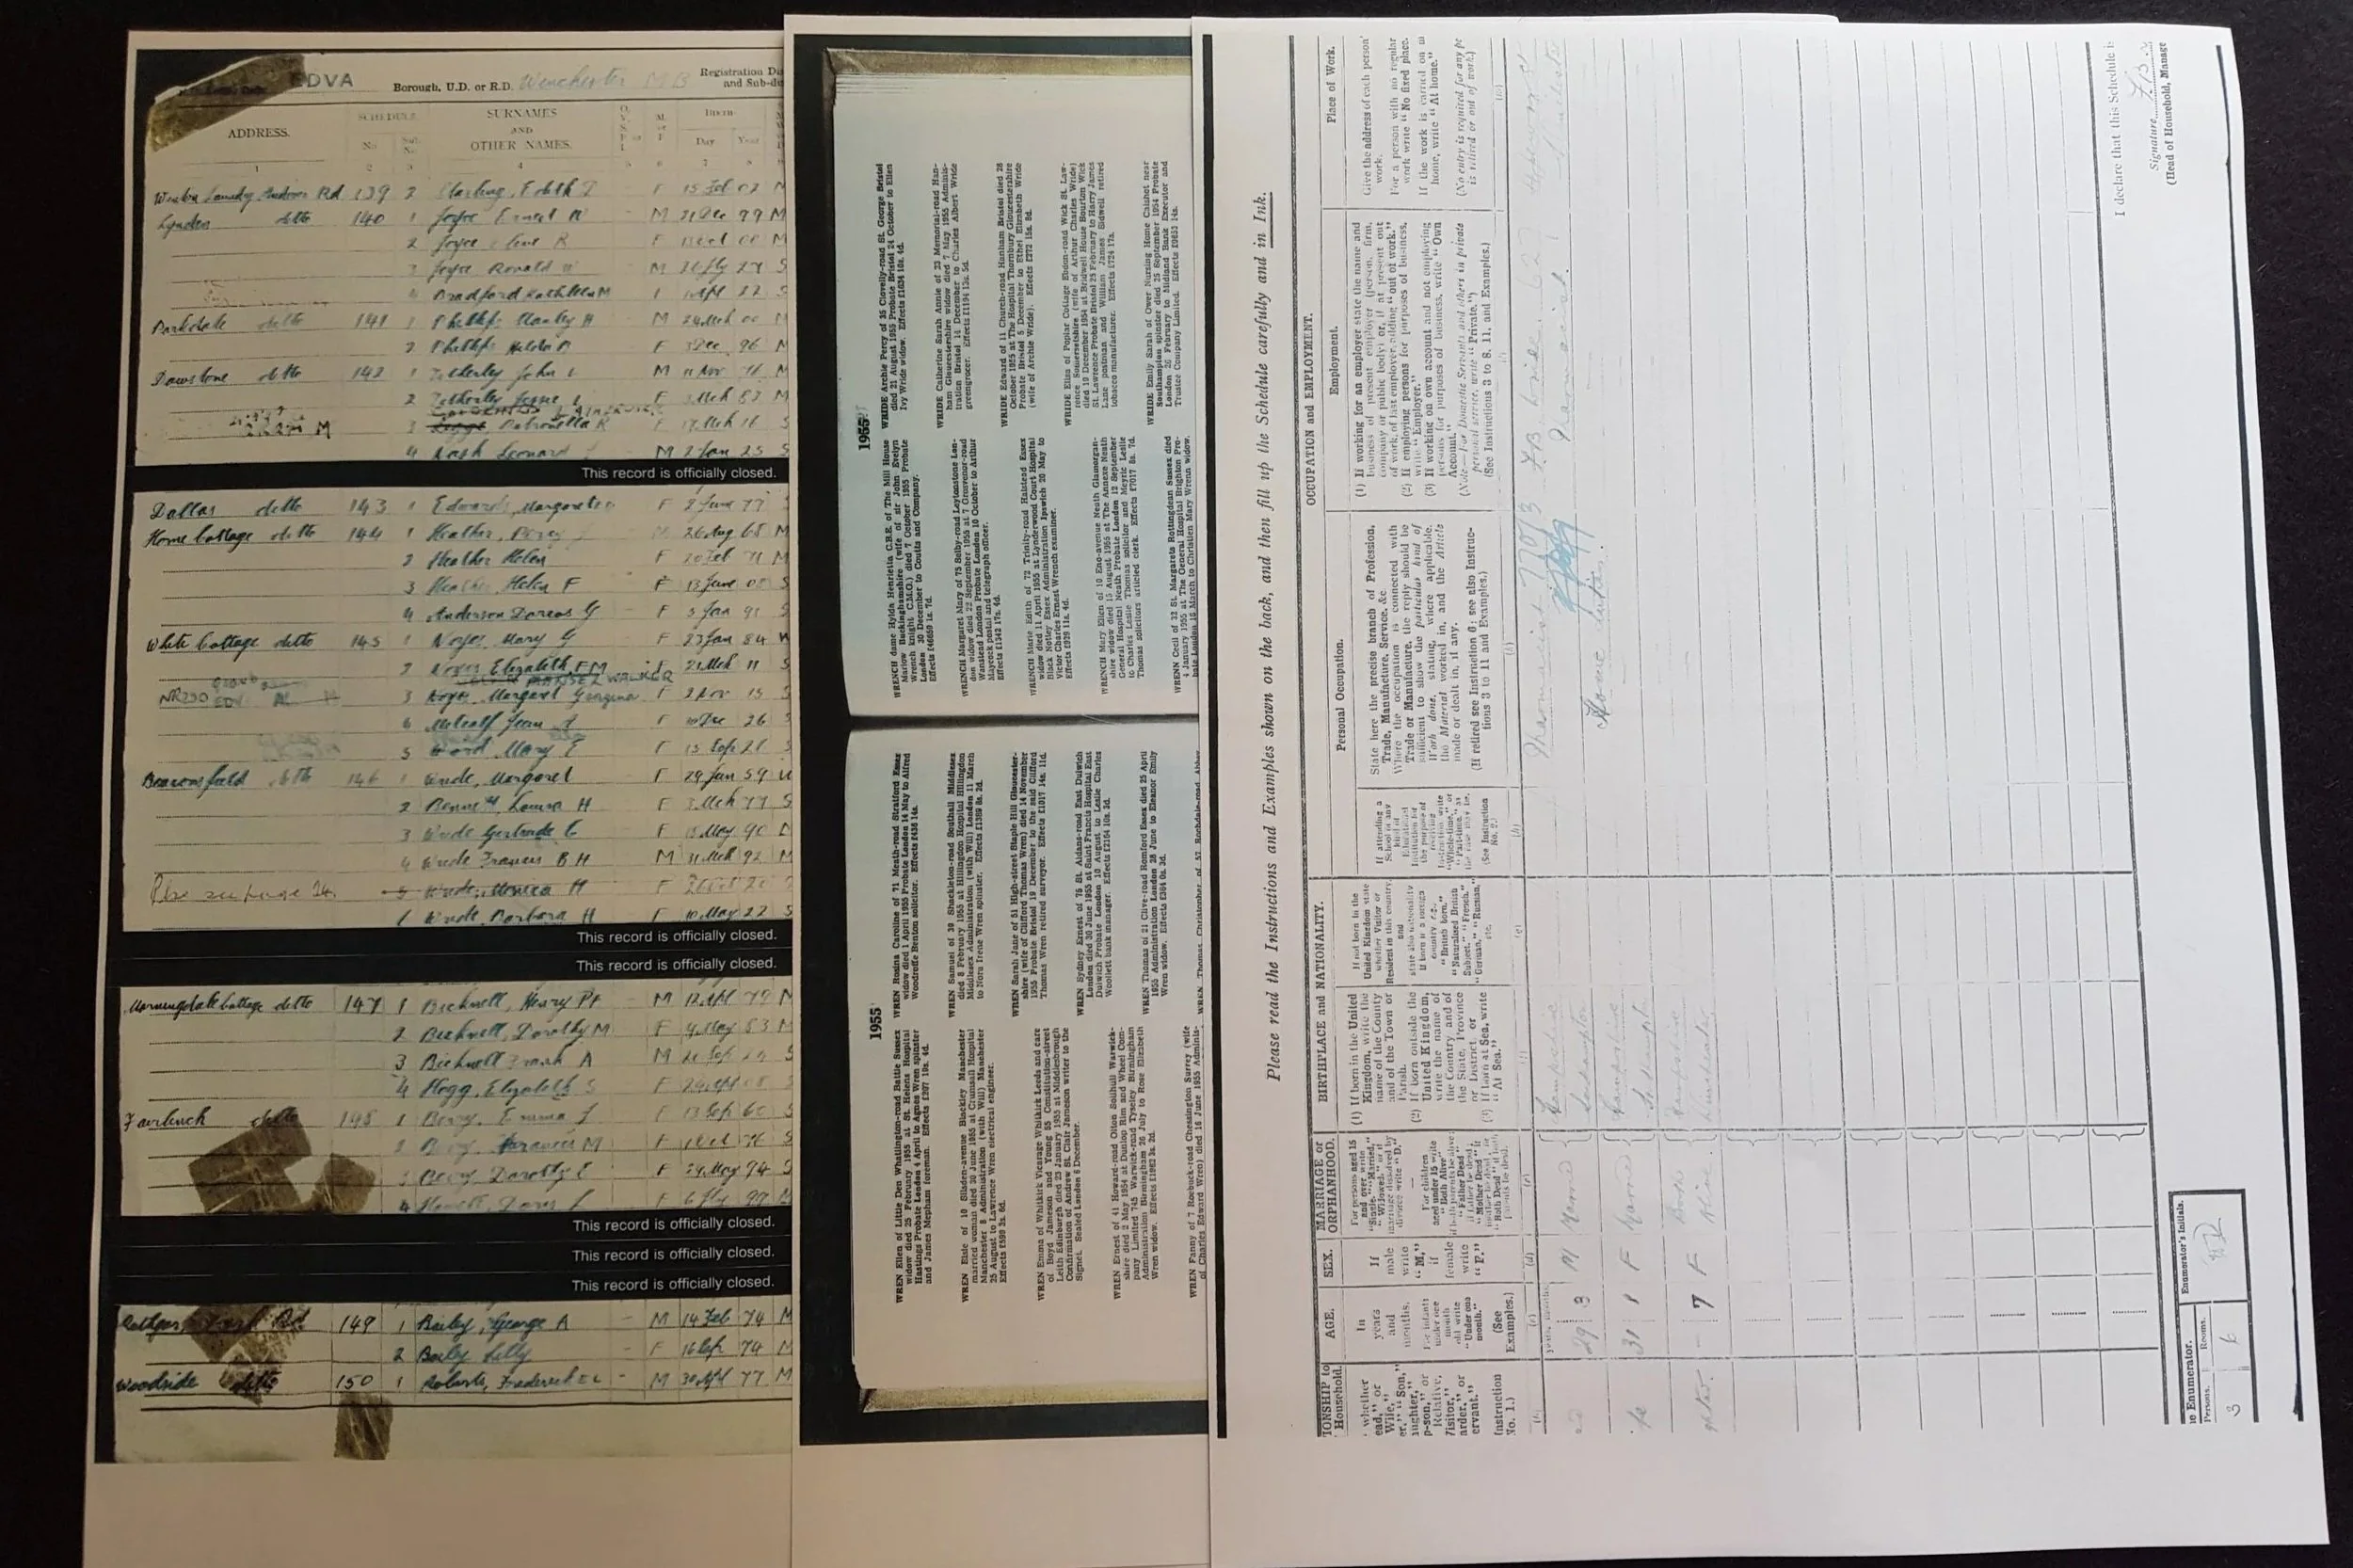 EDVA
Borough, U.D. or R.D. Winchester M B
Registration Di
and Sub-di
ADDRESS.
SCHEDULE
No.
Sub. No.
SURNAMES
AND
OTHER NAMES.
M. or F.
Day Year
1 2 3 4 5 6 7 8
139 2 Starling, Edith F 15 Feb 02 M
Lynden ditto 140 1 Joyce Ernest W - M 21 Dec 99 M
2 Joyce R F 00 M
3 Joyce Ronald W M 27 S
4 Bradford Kathleen M 22 S
Parkdale ditto 141 1 Phillips Stanley H M 24 Mch 00 M
2 Phillips Hilda F Dec 96 M
Dawstone ditto 142 1 John M 11 Nov M
2 Jessie F Mch 82 M
3 Petronella R F 17 Mch 16 S
4 Nash Leonard M 2 Jan 23 S
This record is officially closed.
Dallas ditto 143 1 Edwards, F 2 June 77 S
Home Cottage ditto 144 1 Heather, Percy M 26 Aug 68 M
2 Heather Helen F 20 Feb 71 M
3 Heather, Helen F F 13 June 08 S
4 Anderson Dorcas G F 5 Jan 91 S
White Cottage ditto 145 1 Noyes, Mary G F 23 Jan 84 W
2 Noyes Elizabeth F M F 21 Mch 11 S
WALKER
NR230
3 Noyes, Margaret Georgina F 2 Nov 15 S
4 Metcalf Jean A F Dec 26 S
5 Ward Mary E F 15 Sep 21 S
Beaconsfield ditto 146 1 Wride, Margaret F 29 Jan 59 W
2 Bennett, Louisa H F Mch 77 S
3 Wride Gertrude E F May 90
4 Wride Francis B H M 31 Mch 92 M
Pse see page 24. 5 Wride, Monica H F 20 S
1 Wride Barbara H F 10 May 22 S
This record is officially closed.
This record is officially closed.
Morningdale Cottage ditto 147 1 Bicknell, Henry - M 12 Apl 79 M
2 Bicknell, Dorothy M F 9 May 83 M
3 Bicknell Frank A M 21 Sep S
4 Hogg, Elizabeth S F 08 S
ditto 148 1 Berry, Emma J F 13 Sep 60 S
2 Berry, M F 1 Oct S
3 Berry, Dorothy E F 29 May 94 S
4 Doris F 6 99 M
This record is officially closed.
This record is officially closed.
This record is officially closed.
Rd 149 1 Bailey, George A - M 14 Feb 74 M
2 Bailey Lilly - F 16 Sep 74 M
Woodside ditto 150 1 Roberts, Frederick E L - M 30 Apl 77 M
1955
WREN Ellen of Little Den Whatlington-road Battle Sussex
widow died 25 February 1955 at St. Helens Hospital
Hastings Probate London 4 April to Agnes Wren spinster
and James Mepham foreman. Effects £1207 19s. 4d.
WREN Elsie of 10 Gladen-avenue Blackley Manchester
married woman died 30 June 1955 at Crumpsall Hospital
Manchester Administration (with Will) Manchester
25 August to Lawrence Wren electrical engineer.
Effects £599 3s. 6d.
WREN Emma of Whitkirk Vicarage Whitkirk Leeds and care
of Boyd Jameson and Young 55 Constitution-street
Leith Edinburgh died 23 January 1955 at Middlesbrough
Confirmation of Andrew St. Clair Jameson writer to the
Signet. Sealed London 6 December.
WREN Ernest of 41 Howard-road Olton Solihull Warwick-
shire died 2 May 1954 at Dunlop Rim and Wheel Com-
pany Limited 745 Warwick-road Tyseley Birmingham
Administration Birmingham 26 July to Rose Elizabeth
Wren widow. Effects £1962 3s. 2d.
WREN Fanny of 7 Roebuck-road Chessington Surrey (wife
of Charles Edward Wren) died 16 June 1955 Adminis-
WREN Rosina Caroline of 71 Meath-road Stratford Essex
widow died 1 April 1955 Probate London 14 May to Alfred
Woodroffe Benton solicitor. Effects £436 14s.
WREN Samuel of 39 Shackleton-road Southall Middlesex
died 8 February 1955 at Hillingdon Hospital Hillingdon
Middlesex Administration (with Will) London 11 March
to Nora Irene Wren spinster. Effects £1359 8s. 2d.
WREN Sarah Jane of 51 High-street Staple Hill Gloucester-
shire (wife of Clifford Thomas Wren) died 14 November
1955 Probate Bristol 19 December to the said Clifford
Thomas Wren retired surveyor. Effects £1017 14s. 11d.
WREN Sydney Ernest of 76 St. Aidans-road East Dulwich
London died 30 June 1955 at Saint Francis Hospital East
Dulwich Probate London 10 August to Leslie Charles
Woollett bank manager. Effects £2164 10s. 3d.
WREN Thomas of 21 Clive-road Romford Essex died 25 April
1955 Administration London 28 June to Eleanor Emily
Wren widow. Effects £364 0s. 3d.
WREN Thomas Christopher of 57 Rochdale-road Abbey
1955
WRENCH dame Hylda Henrietta C.B.E. of The Mill House
Marlow Buckinghamshire (wife of sir John Evelyn
Wrench knight C.M.G.) died 7 October 1955 Probate
London 30 December to Coutts and Company.
Effects £46659 1s. 7d.
WRENCH Margaret Mary of 75 Selby-road Leytonstone Lon-
don widow died 22 September 1955 at 7 Grosvenor-road
Wanstead London Probate London 10 October to Arthur
Maycock postal and telegraph officer.
Effects £1342 17s. 4d.
WRENCH Marie Edith of 72 Trinity-road Halstead Essex
widow died 11 April 1955 at Lynderwood Court Hospital
Black Notley Essex Administration Ipswich 20 May to
Victor Charles Ernest Wrench examiner.
Effects £929 11s. 4d.
WRENCH Mary Ellen of 10 Eno-avenue Neath Glamorgan-
shire widow died 15 August 1955 at The Annexe Neath
General Hospital Neath Probate London 12 September
to Charles Leslie Thomas solicitor and Meyric Leslie
Thomas solicitors articled clerk. Effects £7017 8s. 7d.
WRENN Cecil of 32 St. Margarets Rottingdean Sussex died
4 January 1955 at The General Hospital Brighton Pro-
bate London 15 March to Christien Mary Wrenn widow.
WRIDE Archie Percy of 35 Clovelly-road St. George Bristol
died 21 August 1955 Probate Bristol 24 October to Ellen
Ivy Wride widow. Effects £1634 10s. 4d.
WRIDE Catherine Sarah Annie of 23 Memorial-road Han-
ham Gloucestershire widow died 7 May 1955 Adminis-
tration Bristol 14 December to Charles Albert Wride
greengrocer. Effects £1194 13s. 5d.
WRIDE Edward of 11 Church-road Hanham Bristol died 28
October 1955 at The Hospital Thornbury Gloucestershire
Probate Bristol 5 December to Ethel Elizabeth Wride
(wife of Archie Wride). Effects £272 15s. 8d.
WRIDE Eliza of Poplar Cottage Ebdon-road Wick St. Law-
rence Somersetshire (wife of Arthur Charles Wride)
died 19 December 1954 at Bridwell House Bourton Wick
St. Lawrence Probate Bristol 25 February to Harry James
Lane postman and William James Sidwell retired
tobacco manufacturer. Effects £724 17s.
WRIDE Emily Sarah of Ower Nursing Home Calshot near
Southampton spinster died 25 September 1954 Probate
London 26 February to Midland Bank Executor and
Trustee Company Limited. Effects £9653 14s.
Please read the Instructions and Examples shown on the back, and then fill up the Schedule carefully and in Ink.
TIONSHIP to
Household.
whether
ead," or
Wife,"
er," " Son,"
ughter,"
p-son," or
Relative,
Visitor,"
arder," or
ervant."
(Instruction
No. 1.)
AGE.
In
years
and
months.
For infants
under one
month
old write
"Under one
month."
(See
Examples.)
SEX.
If
male
write
"M,"
if
female
write
"F."
MARRIAGE or
ORPHANHOOD.
For persons aged 15
and over write
"Single," "Married,"
"Widowed," or if
marriage dissolved by
divorce write "D."
For children
aged under 15 write
if both parents be alive
"Both Alive"
if father be dead,
"Father Dead"
if mother be dead,
"Mother Dead"
if both parents be dead,
"Both Dead"
BIRTHPLACE and NATIONALITY.
(1) If born in the United
Kingdom, write the
name of the County
and of the Town or
Parish.
(2) If born outside the
United Kingdom,
write the name of
the Country and of
the State, Province
or District, or
(3) If born at Sea, write
"At Sea."
If not born in the
United Kingdom state
whether Visitor or
Resident in this country,
and
state also nationality
if born in a foreign
country e.g.,
"British born,"
"Naturalized British
Subject," "French,"
"German," "Russian,"
etc.
If attending a
School or any
kind of
Educational
Institution for
the purposes of
receiving
Instruction write
"Whole-time," or
"Part-time," as
the case may be.
(See Instruction
No. 5.)
OCCUPATION and EMPLOYMENT.
Personal Occupation.
State here the precise branch of Profession,
Trade, Manufacture, Service, &c.
Where the occupation is connected with
Trade or Manufacture, the reply should be
sufficient to show the particular kind of
Work done, stating, where applicable,
the Material worked in, and the Article
made or dealt in, if any.
(If retired see Instruction 6; see also Instruc-
tions 3 to 11 and Examples.)
Employment.
(1) If working for an employer state the name and
business of present employer (person, firm,
company or public body) or, if at present out
of work, of last employer, adding "out of work."
(2) If employing persons for purposes of business,
write "Employer."
(3) If working on own account and not employing
persons for purposes of business, write "Own
Account."
(Note.—For Domestic Servants and others in private
personal service, write "Private.")
(See Instructions 3 to 8, 11, and Examples.)
Place of Work.
Give the address of each person's
work.
For a person with no regular
work write "No fixed place."
If the work is carried on at
home, write "At home."
(No entry is required for any pe
is retired or out of work.)
29 3 M Married Hampshire Southampton Pharmacist 770/3 F.B. Wride Pharmacist
ife 31 1 F Married Hampshire Southampton Home Duties.
ghter. - 7 F Both Alive. Hampshire Winchester
I declare that this Schedule is
Signature F.B.
(Head of Household, Manage
e Enumerator.
Persons.
Rooms.
Enumerator's Initials.
3 6